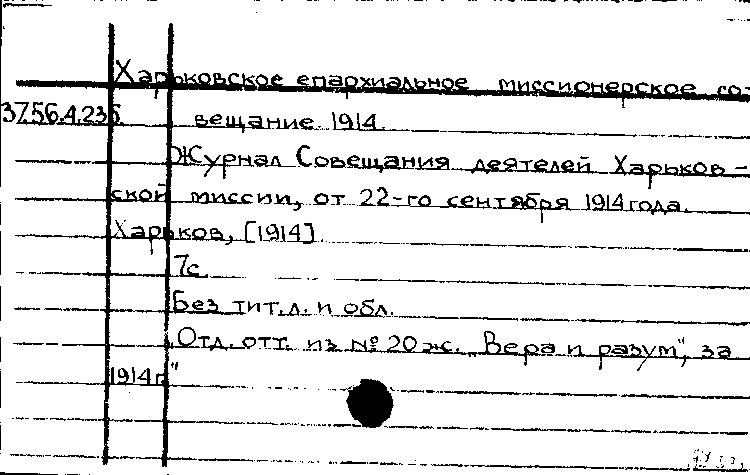 Харьковское епархиальное миссионерское со-
3756.4.235
вещание. 1914.
Журнал Совещания деятелей Харьков-
ской миссии, от 22-го сентября 1914 года.
Харьков, [1914].
7с.
Без тит.л. и обл.
Отд. отт. из № 20 ж. „Вера и разум", за
1914 г."